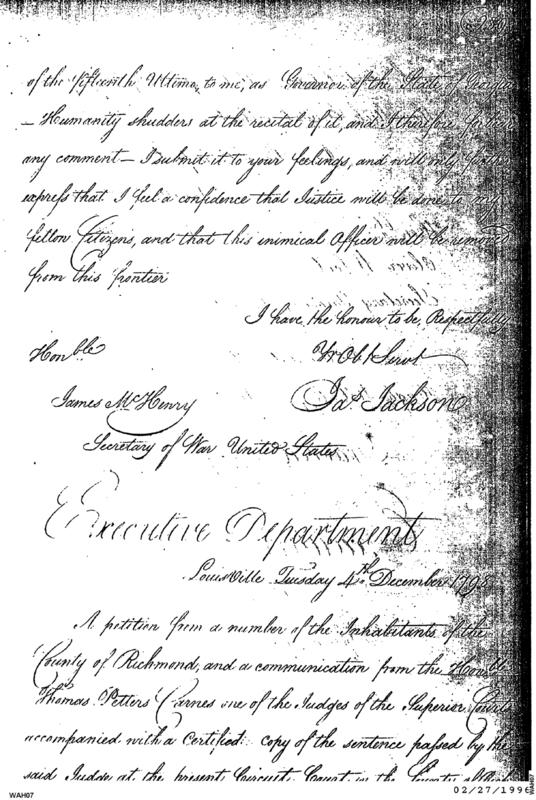 of the fifteenth Ultimo, to me, as Governor of the State of Georgia
– Humanity shudders at the recital of it, and I therefore
any comment – I submit it to your feelings, and will only further
express that I feel a confidence that Justice will be done to my
fellow Citizens, and that this inimical Officer will be removed
from this frontier
I have the honour to be, Respectfully
Yr Obt Servt
Honble
Jas Jackson
James McHenry
Secretary of War United States
Executive Department
Louisville Tuesday 4th December 1798
A petition from a number of the Inhabitants of the
County of Richmond, and a communication from the Honble
Thomas Petters Carnes one of the Judges of the Superior Courts
accompanied with a Certified copy of the sentence passed by the
said Judge at the present Circuit Court in the County of
WAH07
02/27/1996
WAH07